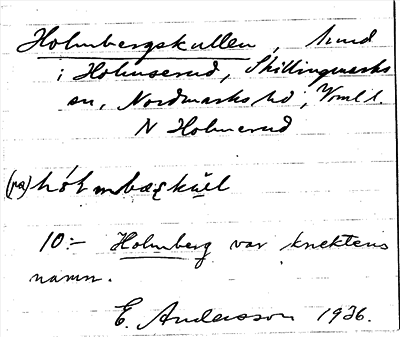 Holmbergskullen, lund
i Holmserud, Skillingmarks
sn, Nordmarks hd, Vrml l.
N Holmerud
(på) hól mbærkul
10:- Holmberg var knektens
namn.
E. Andersson 1936.